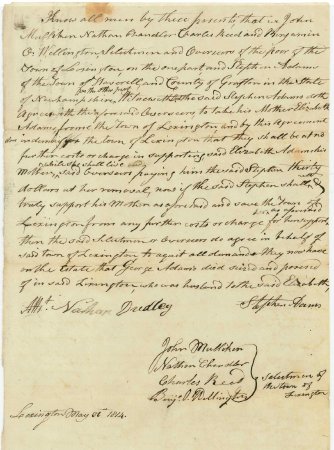 Know all men by these presents that we John
Mulliken Nathan Chandler Charles Reed and Benjamin
O Wellington Selectmen and Overseers of the poor of the
Town of Lexington on the one part and Stephen Adams
of the Town of Haverill and County of Grafton in the State of
for the other part
Newhampshire, Witnesseth the said Stephen Adams doth
agree with the aforesaid Overseers to take his Mother Elizabeth
Adams from the Town of Lexington and by this agreement
doo indemnify the town of Lexington that they shall be at no
further costs or charge in supporting said Elizabeth Adams his
while she shall live and
Mother, said Overseers paying him the said Stephen thirty
dollars at her removal, now if the said Stephen shall
truly support his Mother as aforesaid and save the Town of
Lexington from any further costs or charge for her support,
then the said Selectmen or Overseers do agree in behalf of
said Town of Lexington to aquit all demands they now have
on the Estate that George Adams died seized and possessed
of in said Lexington, who was husband to the said Elizabeth
Attst Nathan Dudley
Stephen Adams
John Mulliken
Nathan Chandler
Charles Reed
Benj. O. Wellington
Selectmen of
the town of
Lexington
Lexington May 1814.